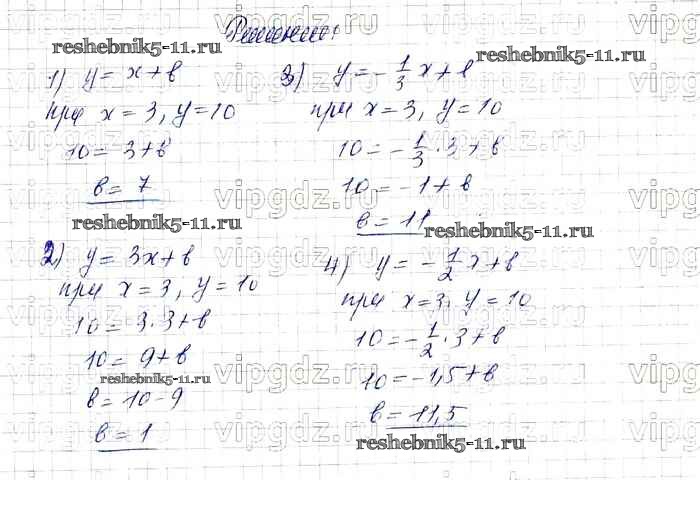 Решение:
1) y = x + в
при x = 3, y = 10
10 = 3 + в
в = 7
2) y = 3x + в
при x = 3, y = 10
10 = 3 · 3 + в
10 = 9 + в
в = 10 - 9
в = 1
3) y = -1/3 x + в
при x = 3, y = 10
10 = -1/3 · 3 + в
10 = -1 + в
в = 11
4) y = -1/2 x + в
при x = 3, y = 10
10 = -1/2 · 3 + в
10 = -1,5 + в
в = 11,5
reshebnik5-11.ru
reshebnik5-11.ru
reshebnik5-11.ru
reshebnik5-11.ru
reshebnik5-11.ru
reshebnik5-11.ru
vipgdz.ru